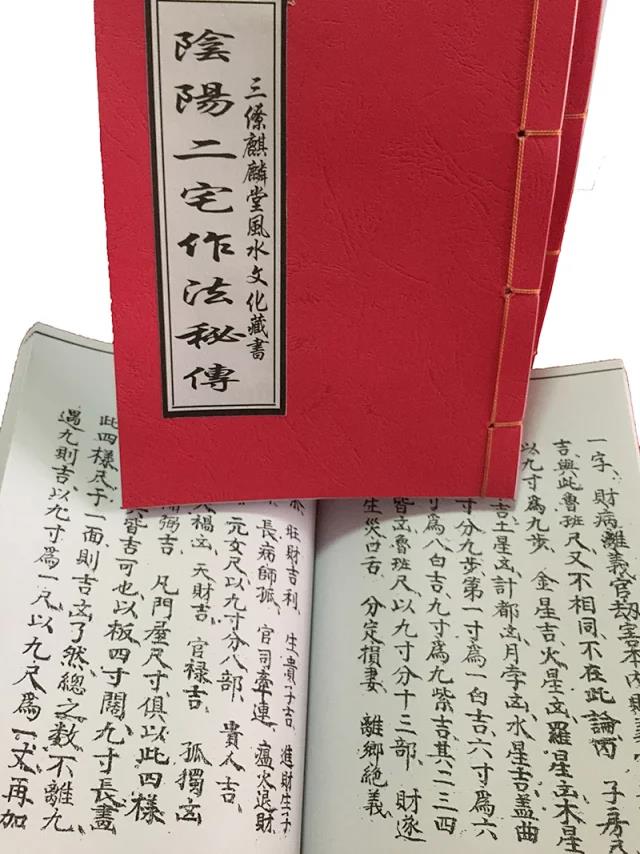 三僚麒麟堂風水文化藏書
陰陽二宅作法秘傳
一字、財病離義官劫害本
吉、與此魯班尺又不相同、不在此論內 子房尺
以九寸爲九步、金星吉、火星凶、羅星凶、木星
吉、土星凶、計都凶、月孛凶、水星吉、盖曲
寸分九步第一寸爲一白吉六寸爲六
寸爲八白吉、九寸爲九紫吉、其二三四
皆凶、魯班尺、以九寸分十三部、財遂
生災口舌 分定損妻、離鄉絕義
旺財吉利、生貴子吉、進財生子
長病師孤、官司牽連、瘟火退財
元女尺以九寸分八部、貴人吉、
禍凶、天財吉、官禄吉 孤獨凶
弼吉 凡門屋尺寸、俱以此四樣
皆吉可也、以板四寸闊、九寸長畫
此四樣尺于一面則吉凶了然、總之數不離九、
遇九則吉、以九寸爲一尺、以九尺爲一丈、再加